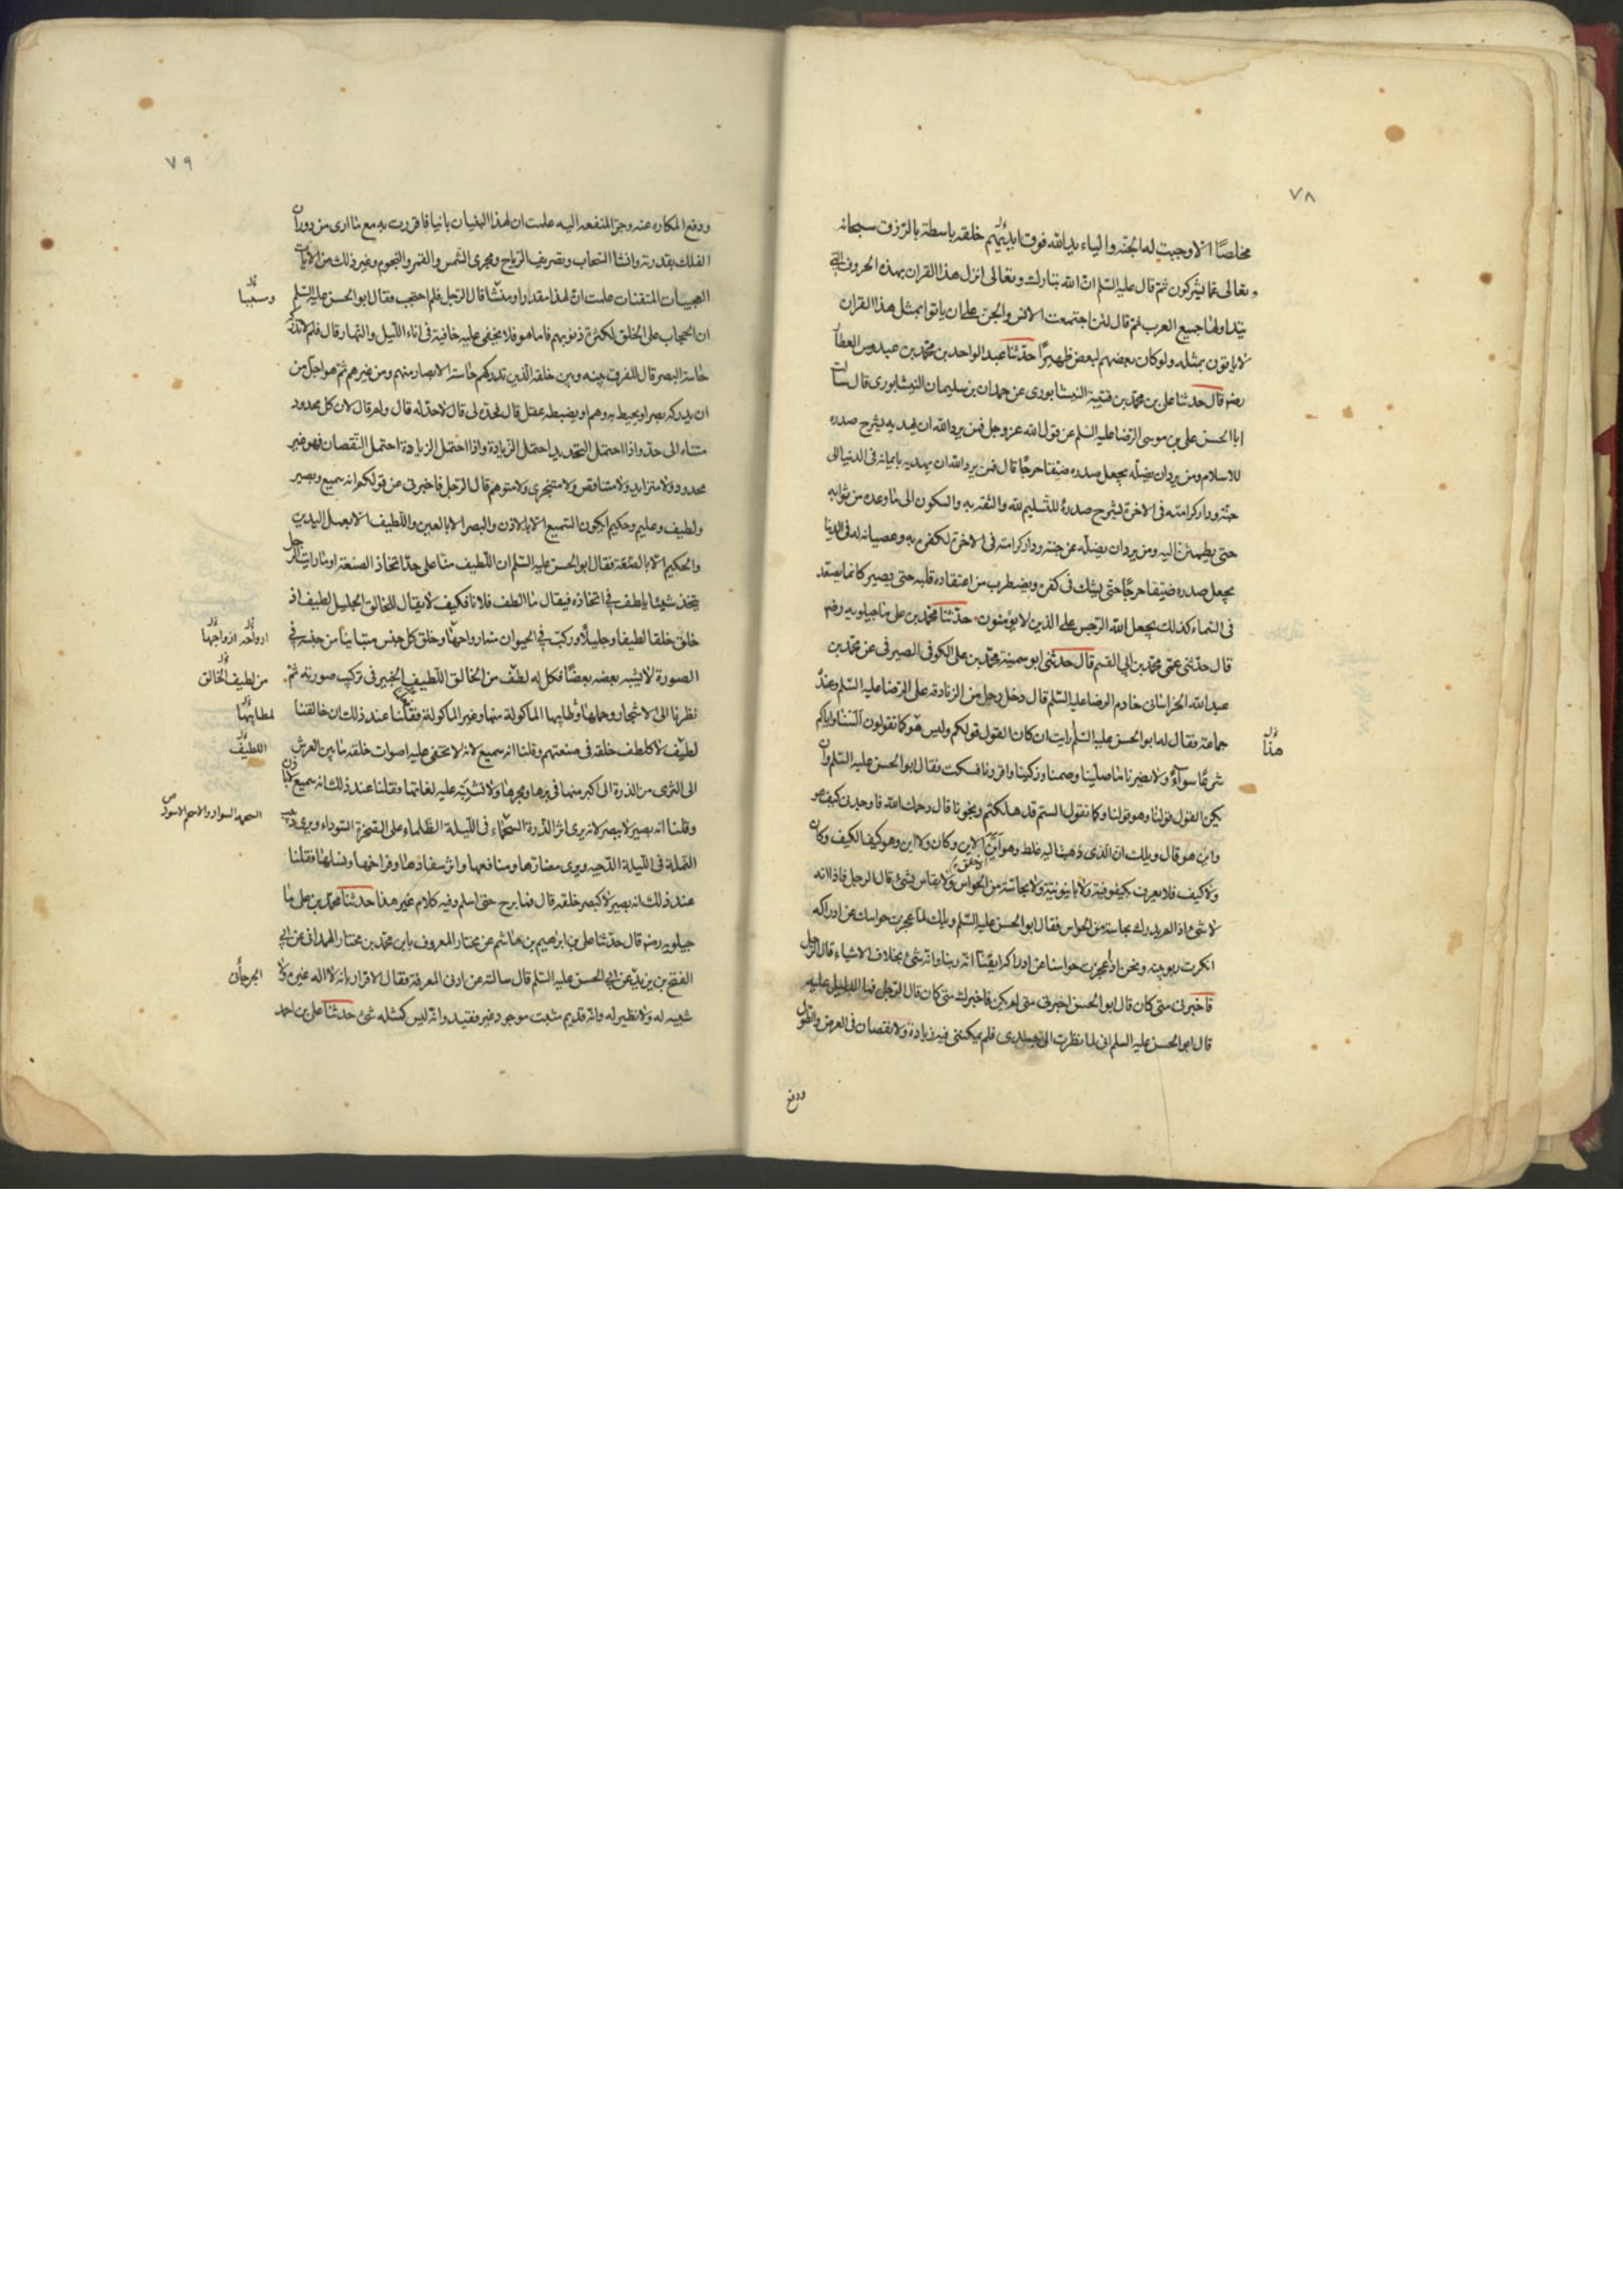 ٧٨
مخلصًا الا وجبت له الجنة والياء يد الله فوق ايديهم خلقه باسطة بالرزق سبحانه
وتعالى عما يشركون ثم قال عليه السلم ان الله تبارك وتعالى انزل هذا القران بهذه الحروف التى
يتداولها جميع العرب ثم قال لئن اجتمعت الانس والجن على ان ياتوا بمثل هذا القران
لا ياتون بمثله ولو كان بعضهم لبعض ظهيرًا حدثنا عبد الواحد بن محمد بن عبدوس العطار
رضه قال حدثنا على بن محمد بن قتيبة النيشابورى عن حمدان بن سليمان النيشابورى قال سالت
ابا الحسن على بن موسى الرضا عليه السلم عن قول الله عز وجل فمن يرد الله ان يهديه يشرح صدره
للاسلام ومن يرد ان يضله يجعل صدره ضيقا حرجًا قال فمن يرد الله ان يهديه بايمانه فى الدنيا الى
جنته ودار كرامته فى الاخرة يشرح صدره للتسليم لله والثقة به والسكون الى ما وعده من ثوابه
حتى يطمئن اليه ومن يرد ان يضله عن جنته ودار كرامته فى الاخرة لكفره به وعصيانه له فى الدنيا
يجعل صدره ضيقا حرجًا حتى يشك فى كفره ويضطرب من اعتقاده قلبه حتى يصير كانما يصعد
فى السماء كذلك يجعل الله الرجس على الذين لا يؤمنون حدثنا محمد بن على ماجيلويه رضه
قال حدثنى عمى محمد بن ابى القسم قال حدثنى ابو سمينة محمد بن على الكوفى الصيرفى عن محمد بن
عبد الله الخراسانى خادم الرضا عليه السلم قال دخل رجل من الزنادقة على الرضا عليه السلم وعنده
جماعة فقال له ابو الحسن عليه السلم رايت ان كان القول قولكم وليس هو كما تقولون السنا واياكم
هذا
شرعًا سواءً ولا يضرنا ما صلينا وصمنا وزكينا واقررنا فسكت فقال ابو الحسن عليه السلم وان
يكن القول قولنا وهو قولنا وكما نقول الستم قد هلكتم ونجونا قال رحمك الله فاوجدنى كيف هو
واين هو قال ويلك ان الذى ذهبت اليه غلط وهو اين الاين وكان ولا اين وهو كيف الكيف وكان
ولا كيف فلا يعرف بكيفوفية ولا باينونية ولا بحاسة من الحواس ولا يقاس بشئ قال الرجل فاذا انه
لا شئ اذا لم يدرك بحاسة من الحواس فقال ابو الحسن عليه السلم ويلك لما عجزت حواسك عن ادراكه
انكرت ربوبيته ونحن اذا عجزت حواسنا عن ادراكه ايقنّا انه ربنا وانه شئ بخلاف الاشياء قال الرجل
فاخبرنى متى كان قال ابو الحسن اخبرنى متى لم يكن فاخبرك متى كان قال الرجل فما الدليل عليه
قال ابو الحسن عليه السلم انى لما نظرت الى جسدى فلم يمكننى فيه زيادة ولا نقصان فى العرض والطول
ودفع
٧٩
ودفع المكاره عنه وجر المنفعه اليه علمت ان لهذا البنيان بانيا فاقررت به مع ما ارى من دوران
الفلك بقدرته وانشا السحاب وتصريف الرياح ومجرى الشمس والقمر والنجوم وغير ذلك من الايات
العجيبات المتقنات علمت ان لهذا مقدارا ومنشًا قال الرجل فلم احتجب فقال ابو الحسن عليه السلم
وسببا
ان الحجاب على الخلق لكثرة ذنوبهم فاما هو فلا يخفى عليه خافية فى اناء الليل والنهار قال فلم لا تدركه
حاسة البصر قال للفرق بينه وبين خلقه الذين تدركهم حاسة الابصار منهم ومن غيرهم ثم هو اجل من
ان يدركه بصر او يحيط به وهم او يضبطه عقل قال فحدّه لى قال لا حدّ له قال ولم قال لان كل محدود
متناه الى حدّ واذا احتمل التحديد احتمل الزيادة واذا احتمل الزيادة احتمل النقصان فهو غير
محدود ولا متزايد ولا متناقص ولا متجزى ولا متوهم قال الرجل فاخبرنى عن قولكم انه سميع وبصير
ولطيف وعليم وحكيم ايكون السميع الا بالاذن والبصر الا بالعين واللطيف الا بعمل اليدين
والحكيم الا بالصنعة فقال ابو الحسن عليه السلم ان اللطيف منّا على حدّ اتخاذ الصنعة او ما رايت الرجل
يتخذ شيئا يلطف فى اتخاذه فيقال ما الطف فلانا فكيف لا يقال للخالق الجليل لطيف اذ
خلق خلقا لطيفا وجليلًا وركب فى الحيوان منه ارواحها وخلق كل جنس متباينا من جنسه فى
ارواحه ازواجها
الصورة لا يشبه بعضه بعضًا فكل له لطف من الخالق اللطيف الخبير فى تركيب صورته ثم
من لطيف الخالق
نظرنا الى الاشجار وحملها وطايبها الماكولة منها وغير الماكولة فقلنا عند ذلك ان خالقنا
لمطايبها
لطيف لا كلطف خلقه فى صنعتهم وقلنا انه سميع لانه لا تخفى عليه اصوات خلقه ما بين العرش
اللطيف
الى الثرى من الذرة الى اكبر منها فى برها وبحرها ولا تشتبه عليه لغاتها فقلنا عند ذلك انه سميع لا باذن
وقلنا انه بصير لا ببصر لانه يرى اثر الذرة السحماء فى الليلة الظلماء على الصخرة السوداء ويرى دبيب
السحمه السواد والاسحم الاسود ص
النملة فى الليلة الدجيه ويرى مضارّها ومنافعها واثر سفادها وفراخها ونسلها فقلنا
عند ذلك انه بصير لا كبصر خلقه قال فما برح حتى اسلم وفيه كلام غير هذا حدثنا محمد بن على ما
جيلويه رضه قال حدثنا على بن ابرهيم بن هاشم عن مختار المعروف بابن محمد بن مختار الهمدانى عن ابى
الفتح بن يزيد عن ابى الحسن عليه السلم قال سالته عن ادنى المعرفة فقال الاقرار بانه لا اله غيره ولا
الجرجانى
شبيه له ولا نظير له وانه قديم مثبت موجود غير فقيد وانه ليس كمثله شئ حدثنا على بن احمد